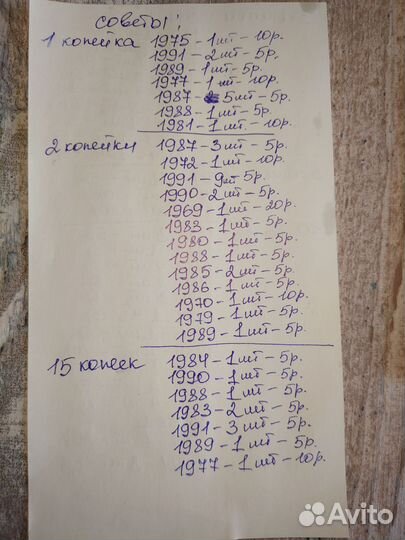 советы:
1 копейка 1975 – 1 шт – 10р.
1991 – 2 шт – 5р.
1989 – 1 шт – 5р.
1977 – 1 шт – 10р.
1987 – 5 шт – 5р.
1988 – 1 шт – 5р.
1981 – 1 шт – 10р.
2 копейки 1987 – 3 шт – 5р.
1972 – 1 шт – 10р.
1991 – 9 шт 5р.
1990 – 2 шт – 5р.
1969 – 1 шт – 20р.
1983 – 1 шт – 5р.
1980 – 1 шт – 5р.
1988 – 1 шт – 5р.
1985 – 2 шт – 5р.
1986 – 1 шт – 5р.
1970 – 1 шт – 10р.
1979 – 1 шт – 5р.
1989 – 1 шт – 5р.
15 копеек 1984 – 1 шт – 5р.
1990 – 1 шт – 5р.
1988 – 1 шт – 5р.
1983 – 2 шт – 5р.
1991 – 3 шт – 5р.
1989 – 1 шт – 5р.
1977 – 1 шт – 10р.
Avito